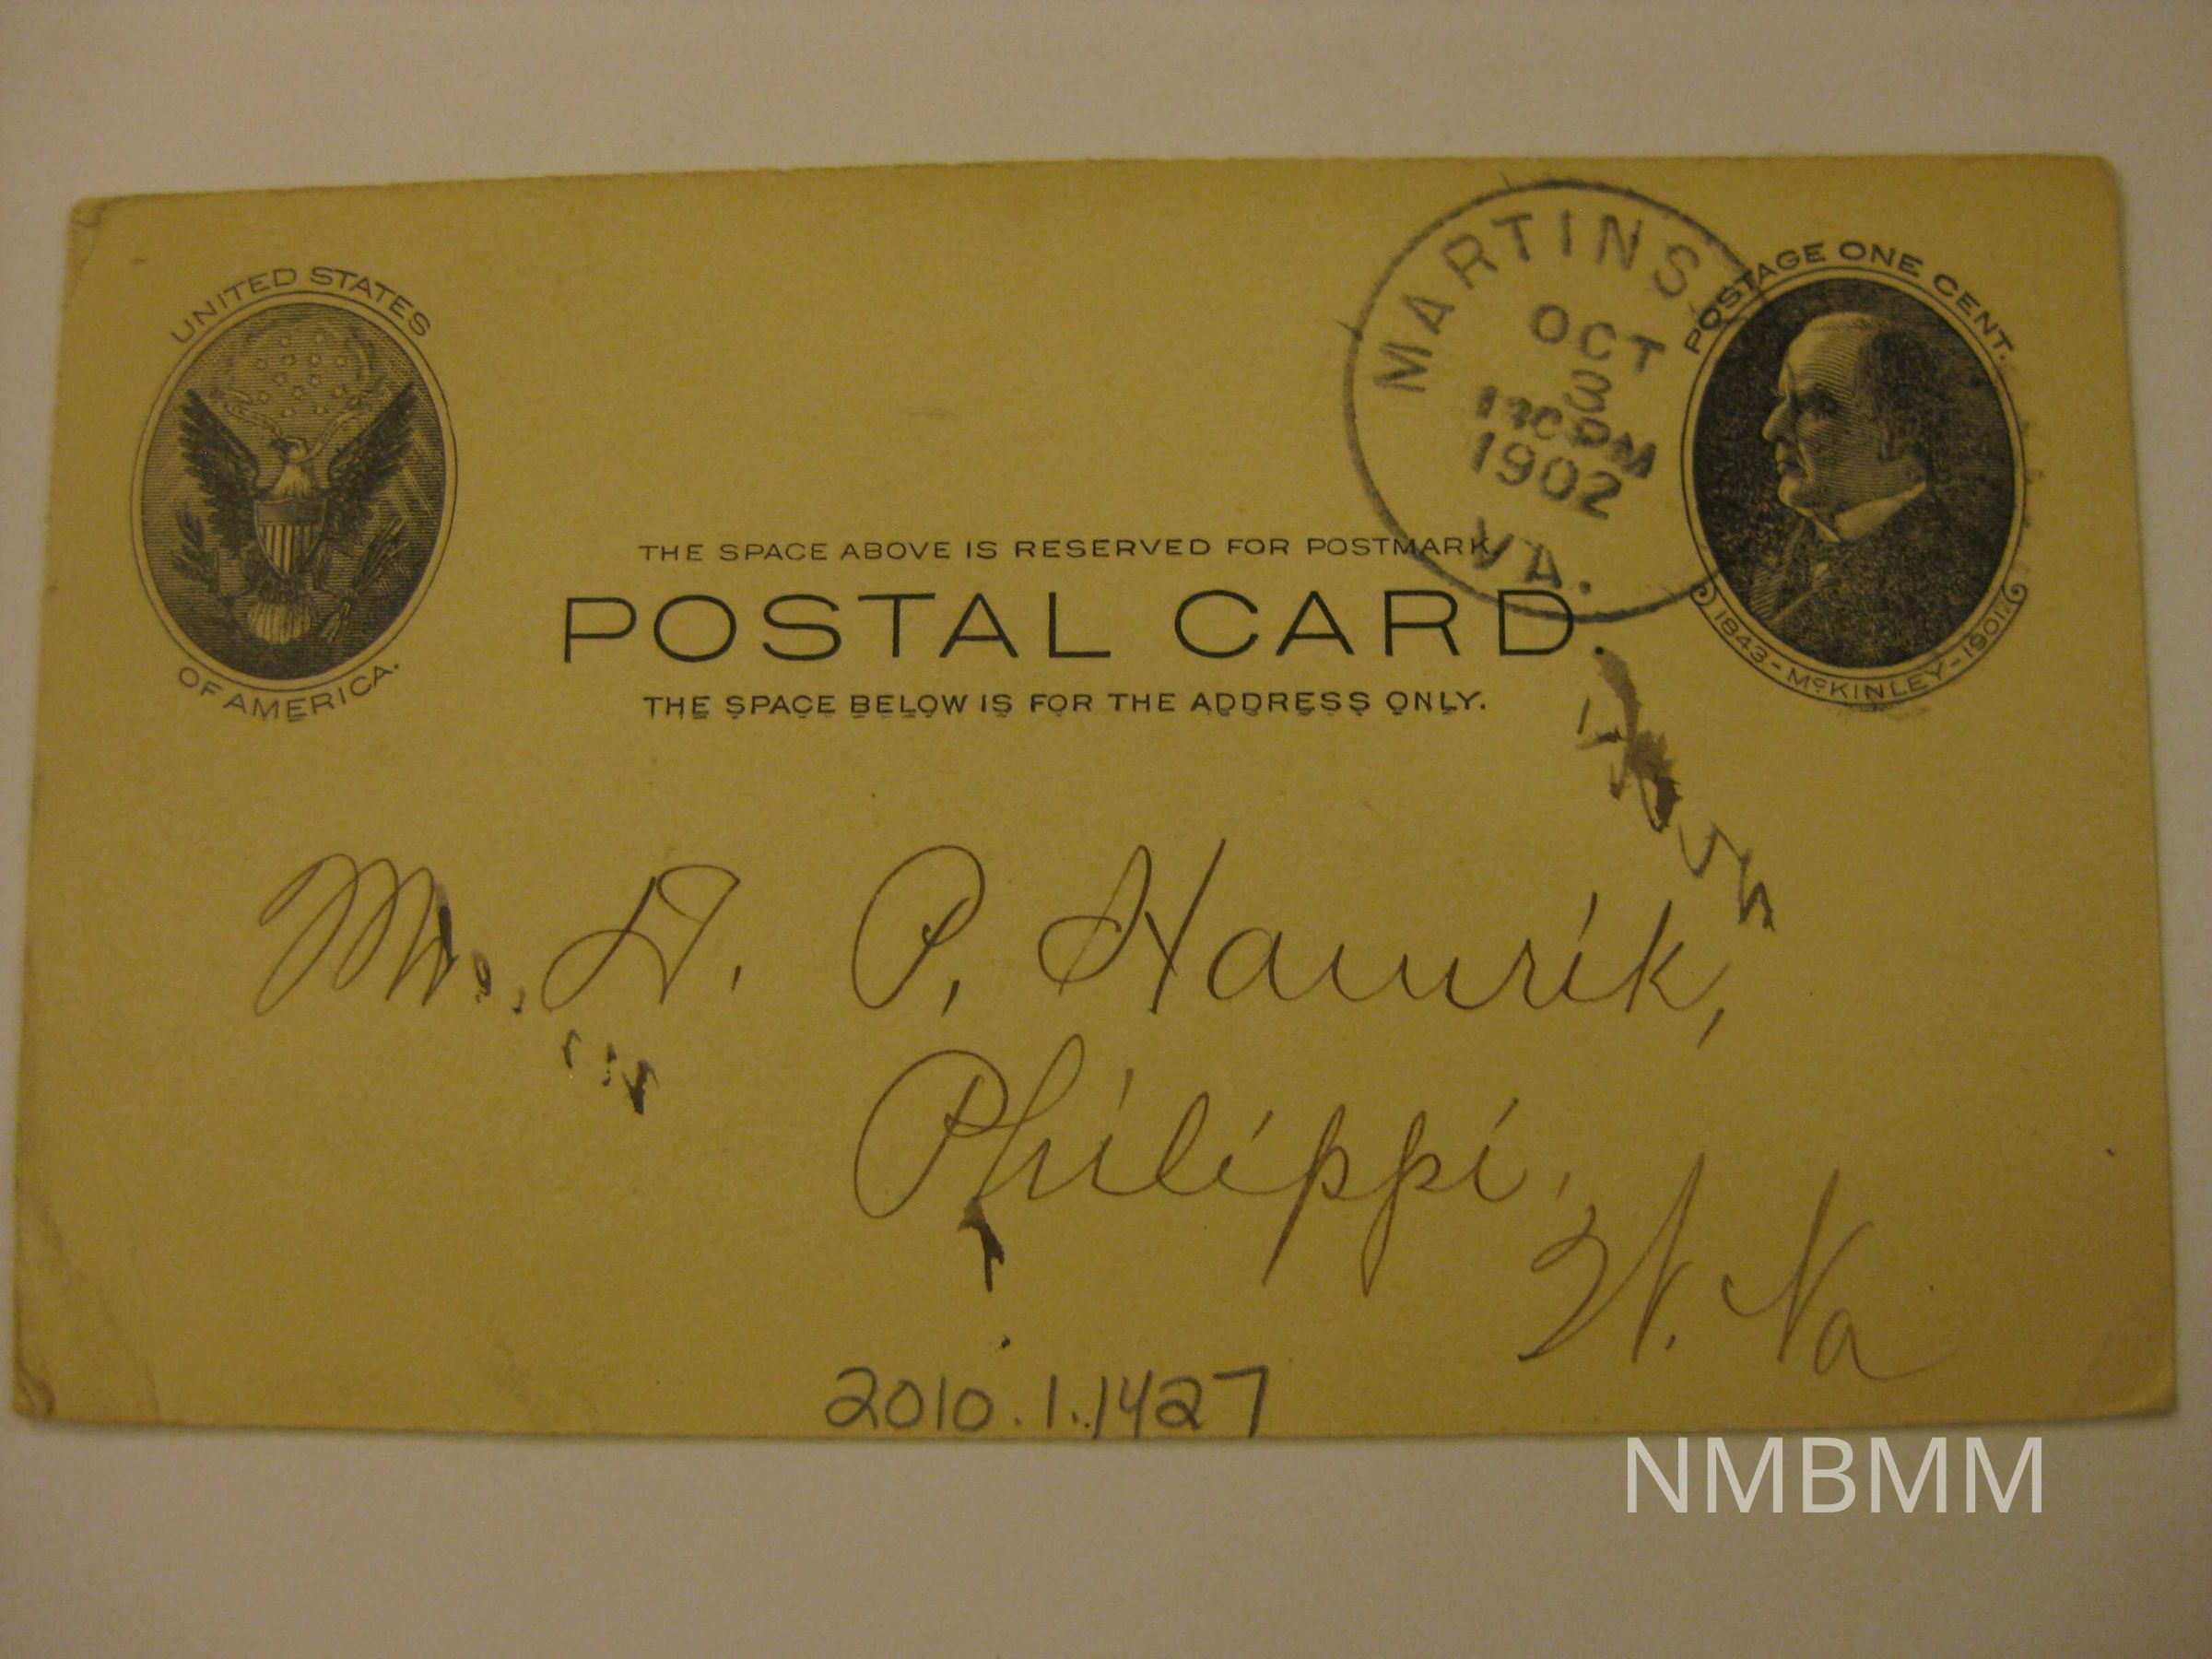 UNITED STATES
OF AMERICA.
MARTINS
OCT
3
1902
VA.
POSTAGE ONE CENT.
1843-McKINLEY-1901.
THE SPACE ABOVE IS RESERVED FOR POSTMARK.
POSTAL CARD.
THE SPACE BELOW IS FOR THE ADDRESS ONLY.
Mr. D. P. Hamrik,
Philippi,
W. Va
2010.1.1427
NMBMM